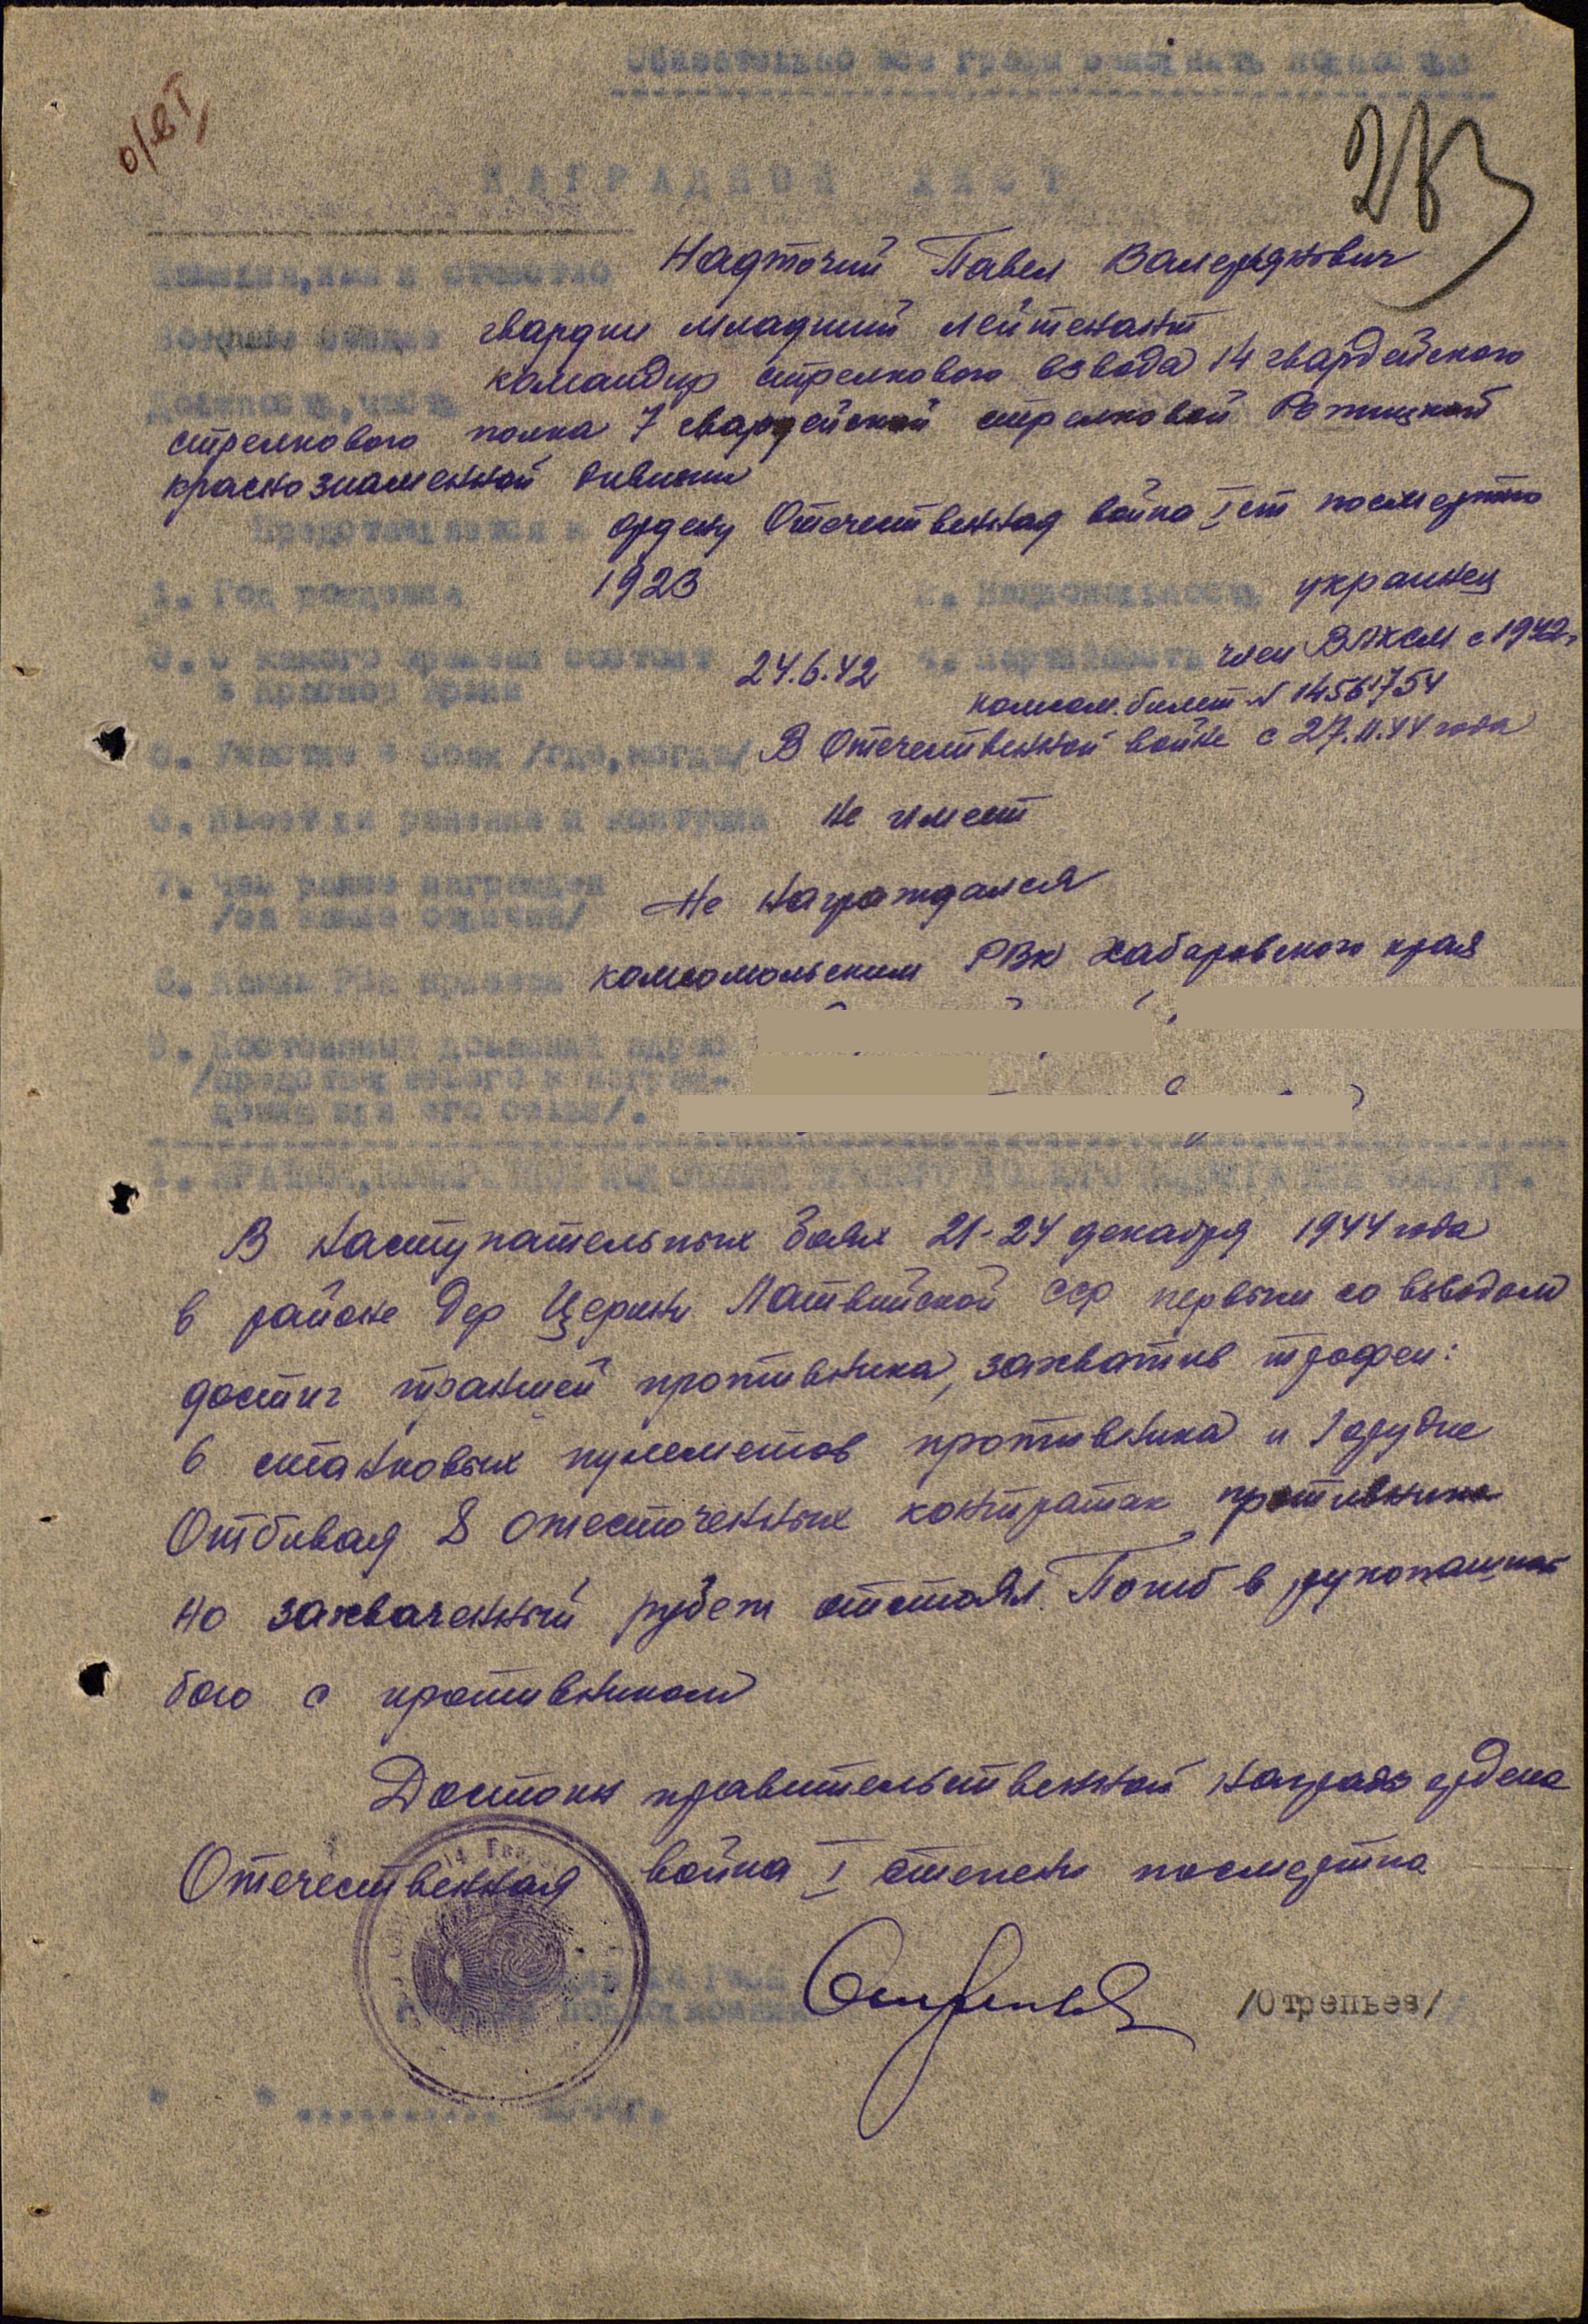 Обязательно все графы заполнять полностью
О/ВI
283
НАГРАДНОЙ ЛИСТ
Фамилия, имя и отчество Надточий Павел Валерьянович
Военное звание гвардии младший лейтенант
Должность, часть командир стрелкового взвода 14 гвардейского
стрелкового полка 7 гвардейской стрелковой Режицкой
краснознаменной дивизии
Представляется к ордену Отечественная война I ст посмертно
1. Год рождения 1923 2. Национальность украинец
3. С какого времени состоит в Красной Армии 24.6.42 4. Партийность член ВЛКСМ с 1942г
комсом. билет № 14561754
5. Участие в боях /где, когда/ В Отечественной войне с 27.11.44 года
6. Имеет ли ранения и контузии не имеет
7. Чем ранее награжден /за какие отличия/ Не награждался
8. Каким РВК призван комсомольским РВК Хабаровского края
9. Постоянный домашний адрес
/представляемого к награж-
дению и его семьи/.
В наступательных боях 21-24 декабря 1944 года
в районе дер Церини Латвийской ССР первым со взводом
достиг траншей противника, захватив трофеи:
6 станковых пулеметов противника и 1 орудие
Отбивая 8 ожесточенных контратак противника
но захваченный рубеж отстоял. Погиб в рукопашном
бою с противником
Достоин правительственной награды ордена
Отечественная война I степени посмертно
/Отрепьев/